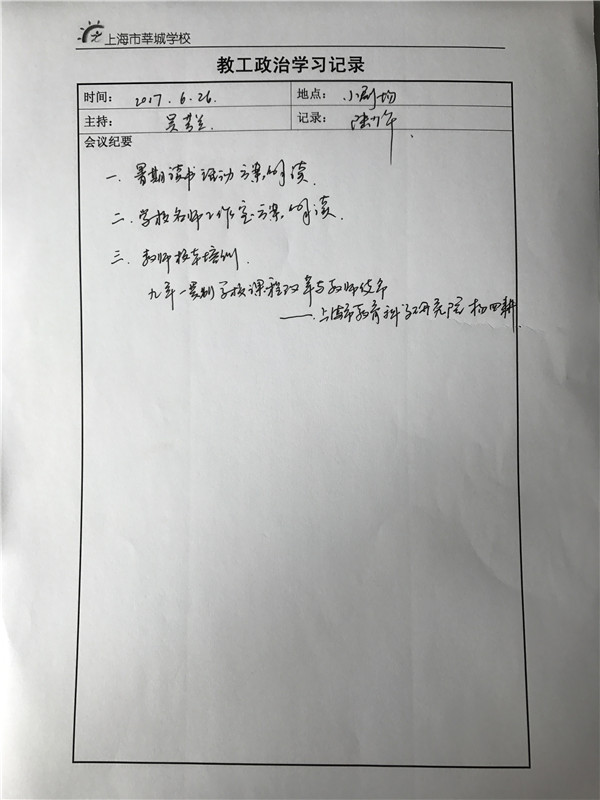 上海市莘城学校
教工政治学习记录
时间: 2017.6.26. 地点: 小剧场
主持: 吴 记录: 陆
会议纪要
一、暑期读书活动方案解读
二、学校名师工作室方案解读
三、教师校本培训
九年一贯制学校课程改革与教师
——上海市教育科学研究院 杨四耕